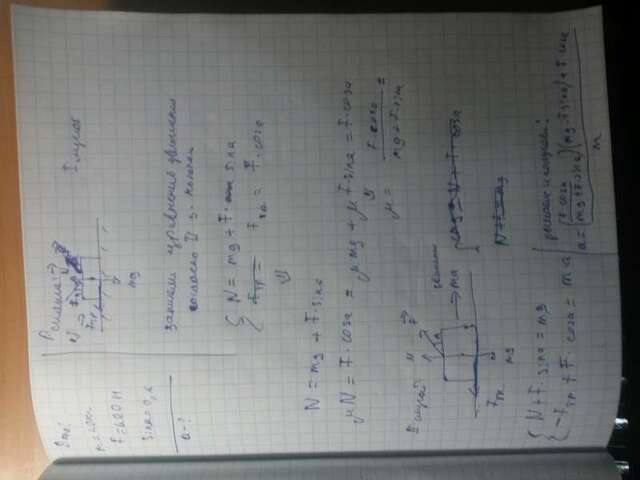 Дано:
F = 600 Н
sin α = 0,6
a - ?
Решение:
I случай
Fтр
mg
запишем уравнение движения
согласно II з. Ньютона
N = mg + F · sin α
Fтр = F · cos α
⇓
N = mg + F · sin α
μN = F · cos α = μ mg + μ F · sin α = F · cos α
μ = F · cos α / mg + F · sin α =
II случай
N
F
α
ma
Fтр
mg
N + F · sin α = mg
-Fтр + F · cos α = ma
решаем и получаем:
a = (F · cos α / mg + F · sin α)(mg - F sin α) + F · cos α / m